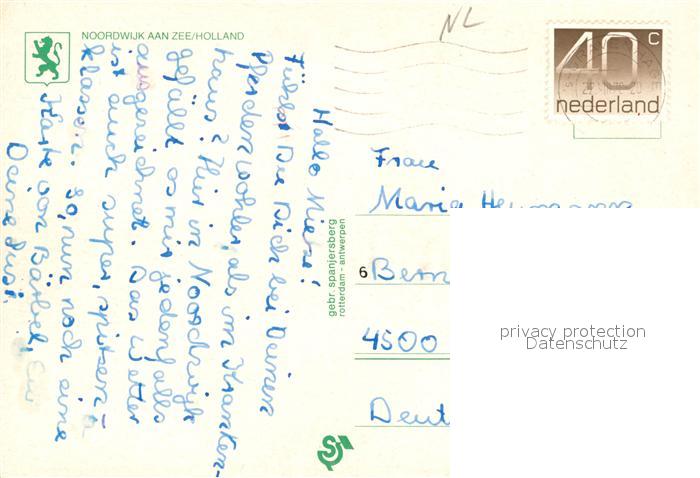 NOORDWIJK AAN ZEE/HOLLAND
NL
40 c
nederland
Hallo Mieze!
Fühlst Du Dich bei Deinen
Pferden wohler, als im Kranken-
haus? Hier in Noordwijk
gefällt es mir jedenfalls
ausgezeichnet. Das Wetter
ist auch super, spitzen-
klasse. So, nun noch eine
Karte von Bärbel,
Deine Susi.
gebr. spanjersberg
rotterdam - antwerpen
Frau
Maria
6 Bern
4500
Deut
privacy protection
Datenschutz